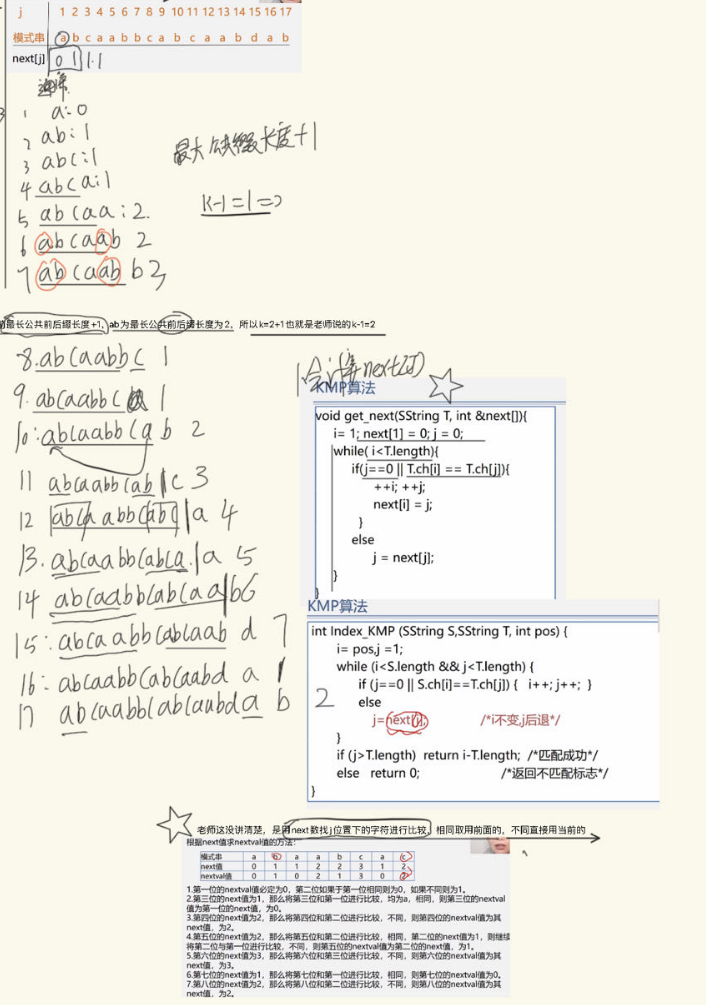 j 1 2 3 4 5 6 7 8 9 10 11 12 13 14 15 16 17
模式串 a b c a a b b c a b c a a b d a b
next[j] 0 1 1 1
1 a:0
2 ab:1
3 abc:1
4 abca:1
5 abcaa:2.
6 abcaab 2
7 abcaabb 3
最大公共缀长度+1
k-1=1=>
前最长公共前后缀长度+1、ab为最长公共前后缀长度为2，所以k=2+1也就是老师说的k-1=2
8.abcaabbc 1
9.abcaabbca 1
10:abcaabbcab 2
11 abcaabbcab|c 3
12 abcaabbcabc|a 4
13.abcaabbcabca.|a 5
14 abcaabbcabcaa|b6
15:abcaabbcabcaab d 7
16:abcaabbcabcaabd a 1
17 abcaabbcabcaabda b
1.会计算next[j]
KMP算法
void get_next(SString T, int &next[]){
i= 1; next[1] = 0; j = 0;
while( i<T.length){
if(j==0 || T.ch[i] == T.ch[j]){
++i; ++j;
next[i] = j;
}
else
j = next[j];
}
}
KMP算法
int Index_KMP (SString S,SString T, int pos) {
i= pos,j =1;
while (i<S.length && j<T.length) {
2 if (j==0 || S.ch[i]==T.ch[j]) { i++; j++; }
else
j=next[j]; /*i不变,j后退*/
}
if (j>T.length) return i-T.length; /*匹配成功*/
else return 0; /*返回不匹配标志*/
}
老师这没讲清楚，是用next数找j位置下的字符进行比较，相同取用前面的，不同直接用当前的
根据next值求nextval值的方法：
模式串 a b a a b c a c
next值 0 1 1 2 2 3 1 2
nextval值 0 1 0 2 1 3 0 2
1.第一位的nextval值必定为0，第二位如果于第一位相同则为0，如果不同则为1。
2.第三位的next值为1，那么将第三位和第一位进行比较，均为a，相同，则第三位的nextval
值为第一位的next值，为0。
3.第四位的next值为2，那么将第四位和第二位进行比较，不同，则第四位的nextval值为其
next值，为2。
4.第五位的next值为2，那么将第五位和第二位进行比较，相同，第二位的next值为1，则继续
将第二位与第一位进行比较，不同，则第五位的nextval值为第二位的next值，为1。
5.第六位的next值为3，那么将第六位和第三位进行比较，不同，则第六位的nextval值为其
next值，为3。
6.第七位的next值为1，那么将第七位和第一位进行比较，相同，则第七位的nextval值为0。
7.第八位的next值为2，那么将第八位和第二位进行比较，不同，则第八位的nextval值为其
next值，为2。